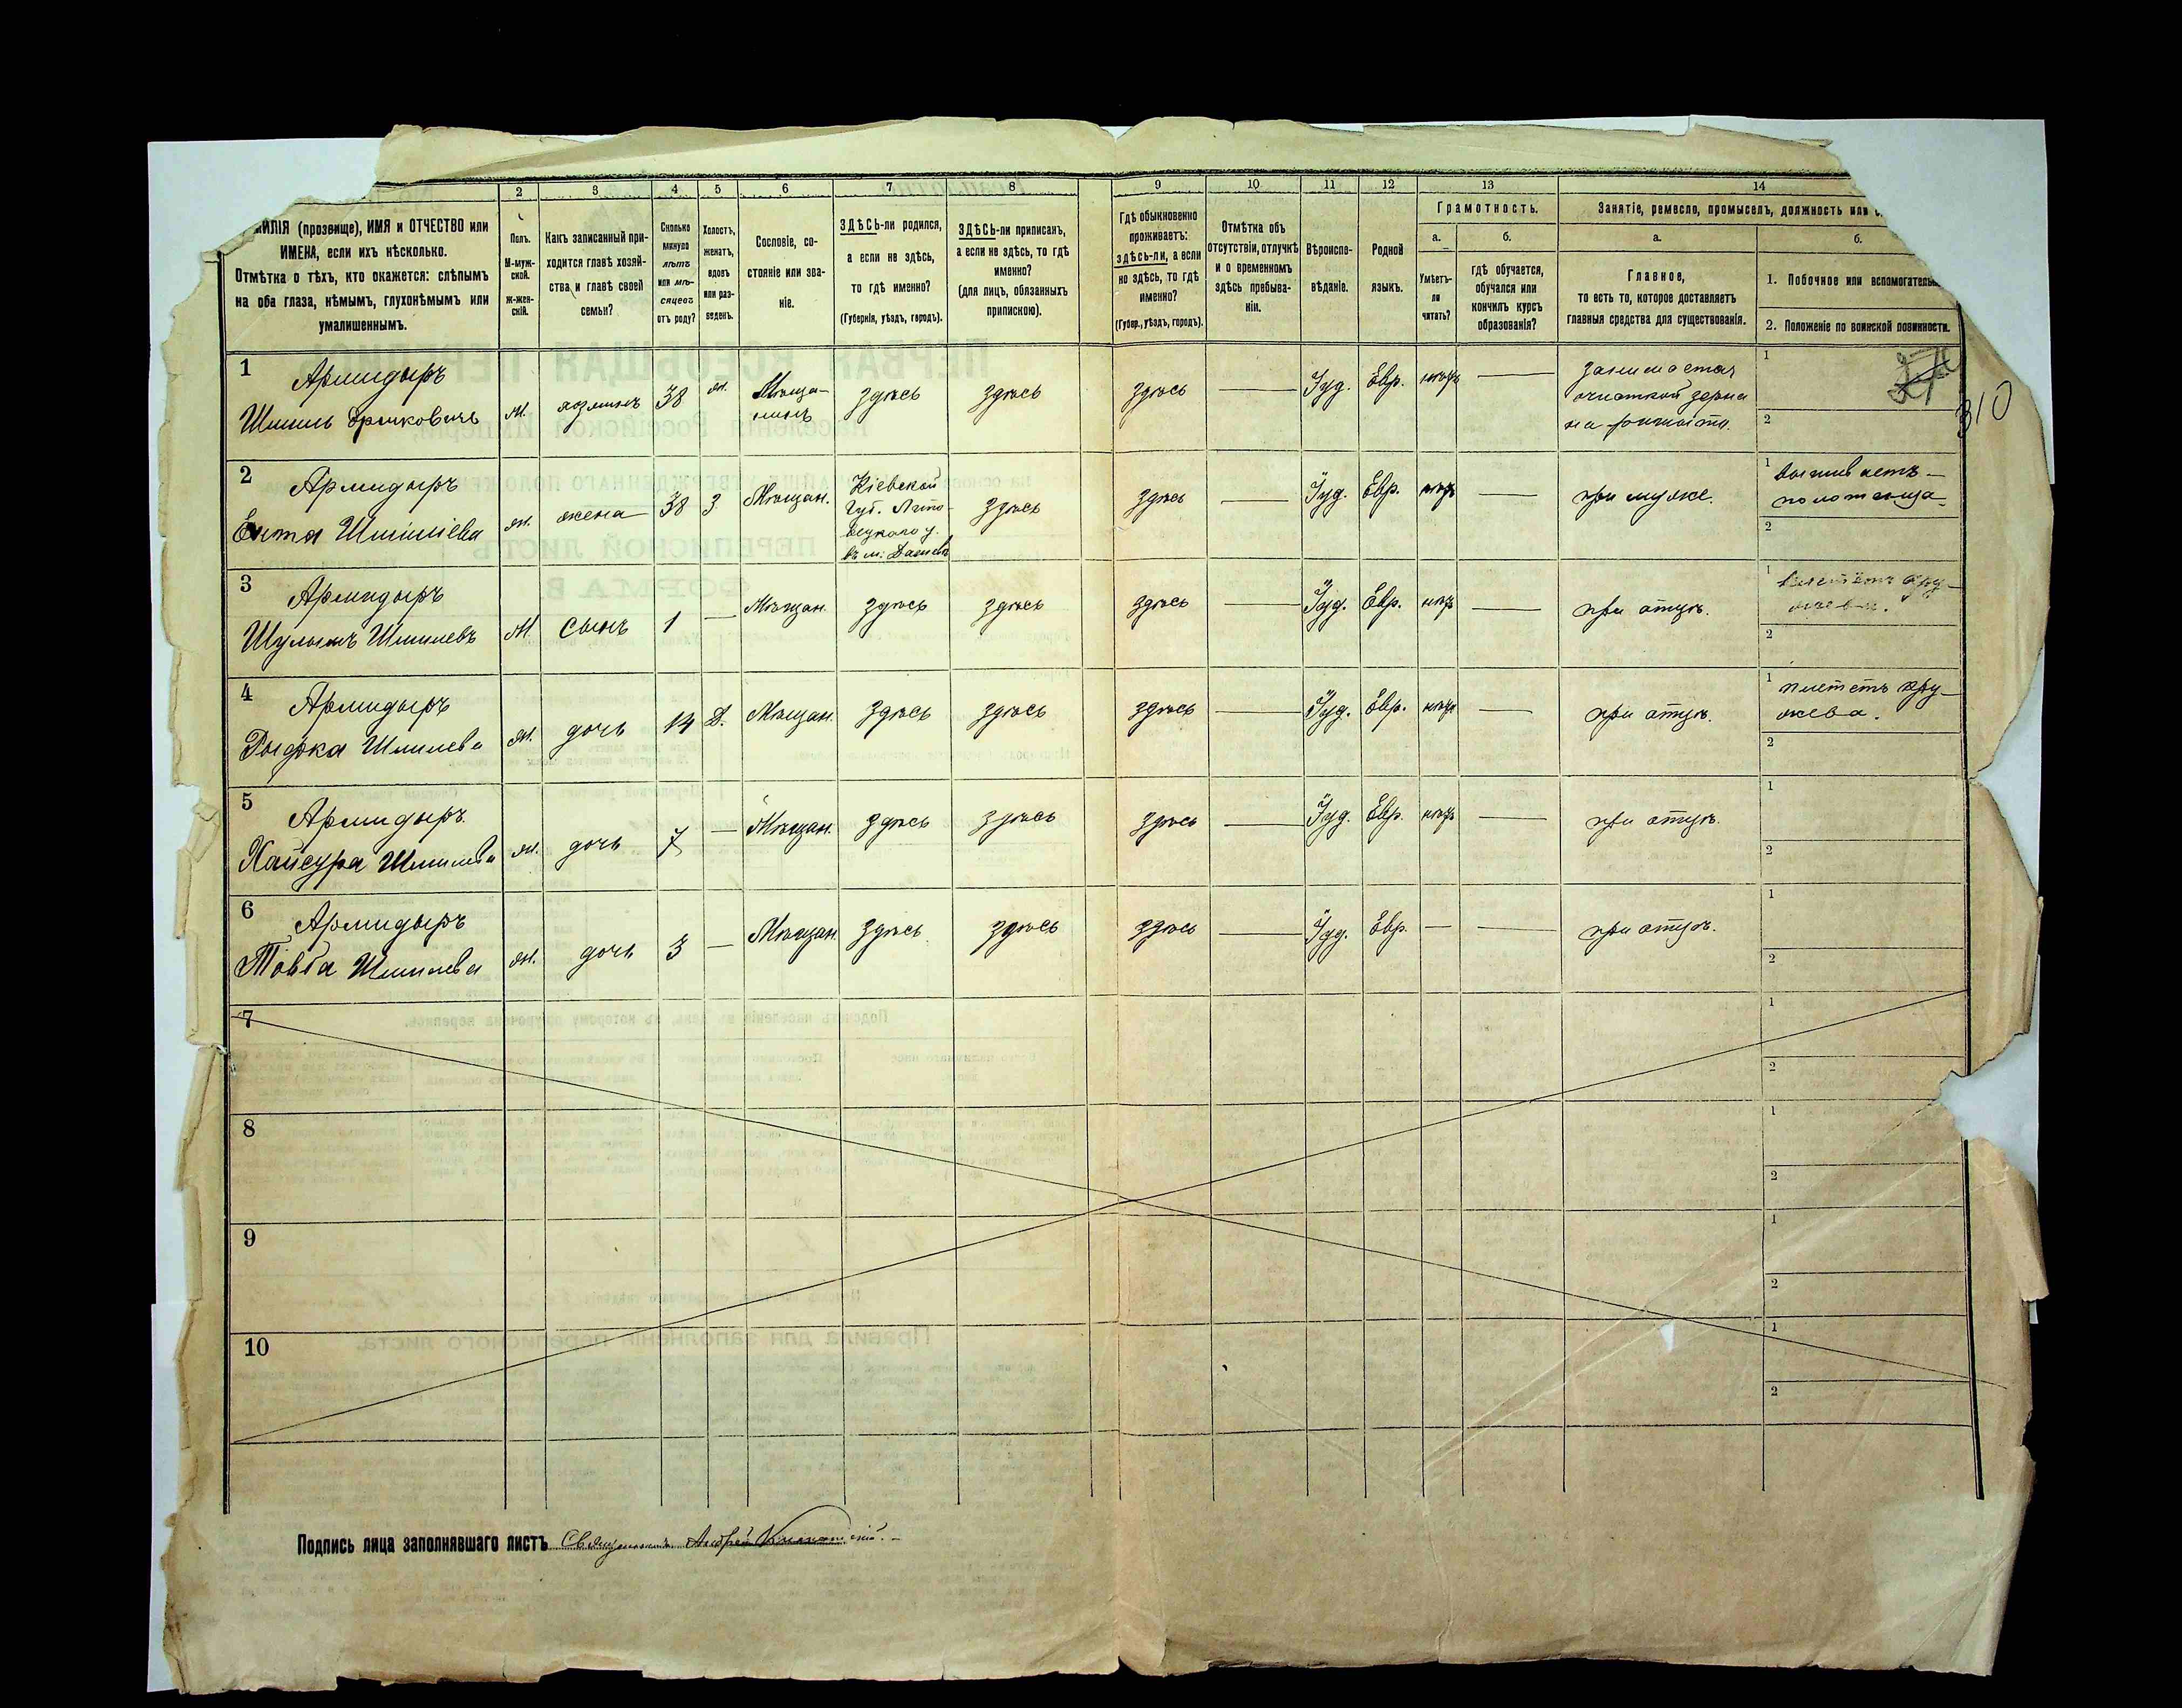 2 3 4 5 6 7 8 9 10 11 12 13 14
(прозвище), ИМЯ и ОТЧЕСТВО или
ИМЕНА, если ихъ нѣсколько.
Отмѣтка о тѣхъ, кто окажется: слѣпымъ
на оба глаза, нѣмымъ, глухонѣмымъ или
умалишеннымъ.
Полъ.
М-муж-
ской.
Ж-жен-
скій.
Какъ записанный при-
ходится главѣ хозяй-
ства и главѣ своей
семьи?
Сколько
минуло
лѣтъ
или мѣ-
сяцевъ
отъ роду?
Холостъ,
женатъ,
вдовъ
или раз-
веденъ.
Сословіе, со-
стояніе или зва-
ніе.
ЗДѢСЬ-ли родился,
а если не здѣсь,
то гдѣ именно?
(Губернія, уѣздъ, городъ).
ЗДѢСЬ-ли приписанъ,
а если не здѣсь, то гдѣ
именно?
(для лицъ, обязанныхъ
припискою).
Гдѣ обыкновенно
проживаетъ:
здѣсь-ли, а если
не здѣсь, то гдѣ
именно?
(Губер., уѣздъ, городъ).
Отмѣтка объ
отсутствіи, отлучкѣ
и о временномъ
здѣсь пребыва-
ніи.
Вѣроиспо-
вѣданіе.
Родной
языкъ.
Грамотность.
а.
Умѣетъ-
ли
читать?
б.
гдѣ обучается,
обучался или
кончилъ курсъ
образованія?
Занятіе, ремесло, промыселъ, должность или
а.
Главное,
то есть то, которое доставляетъ
главныя средства для существованія.
б.
1. Побочное или
2. Положеніе по воинской повинности.
1
Армидыръ
Шмиль
м.
хозяинъ
38
ж.
Мѣща-
нинъ
здѣсь
здѣсь
здѣсь
Іуд.
Евр.
нѣтъ
занимается
очисткой зерна
на
1
2
310
2
Армидыръ
Ента
ж.
жена
38
З
Мѣщан.
Кіевской
Губ. Липо-
вецкаго у.
въ м. Дашевѣ
здѣсь
здѣсь
Іуд.
Евр.
нѣтъ
при мужѣ.
1 вышиваетъ
полотенца
2
3
Армидыръ
Шмилевъ
М
сынъ
1
Мѣщан.
здѣсь
здѣсь
здѣсь
Іуд.
Евр.
нѣтъ
при отцѣ.
1
2
4
Армидыръ
Шмилева
ж.
дочь
14
Д.
Мѣщан.
здѣсь
здѣсь
здѣсь
Іуд.
Евр.
нѣтъ
при отцѣ.
1 плететъ кру-
жева.
2
5
Армидыръ
Хайсура Шмилева
ж.
дочь
7
Мѣщан.
здѣсь
здѣсь
здѣсь
Іуд.
Евр.
нѣтъ
при отцѣ.
1
2
6
Армидыръ
Товба Шмилева
ж.
дочь
3
Мѣщан.
здѣсь
здѣсь
здѣсь
Іуд.
Евр.
при отцѣ.
1
2
7
1
2
8
1
2
9
1
2
10
1
2
Подпись лица заполнявшаго листъ Священникъ Андрей